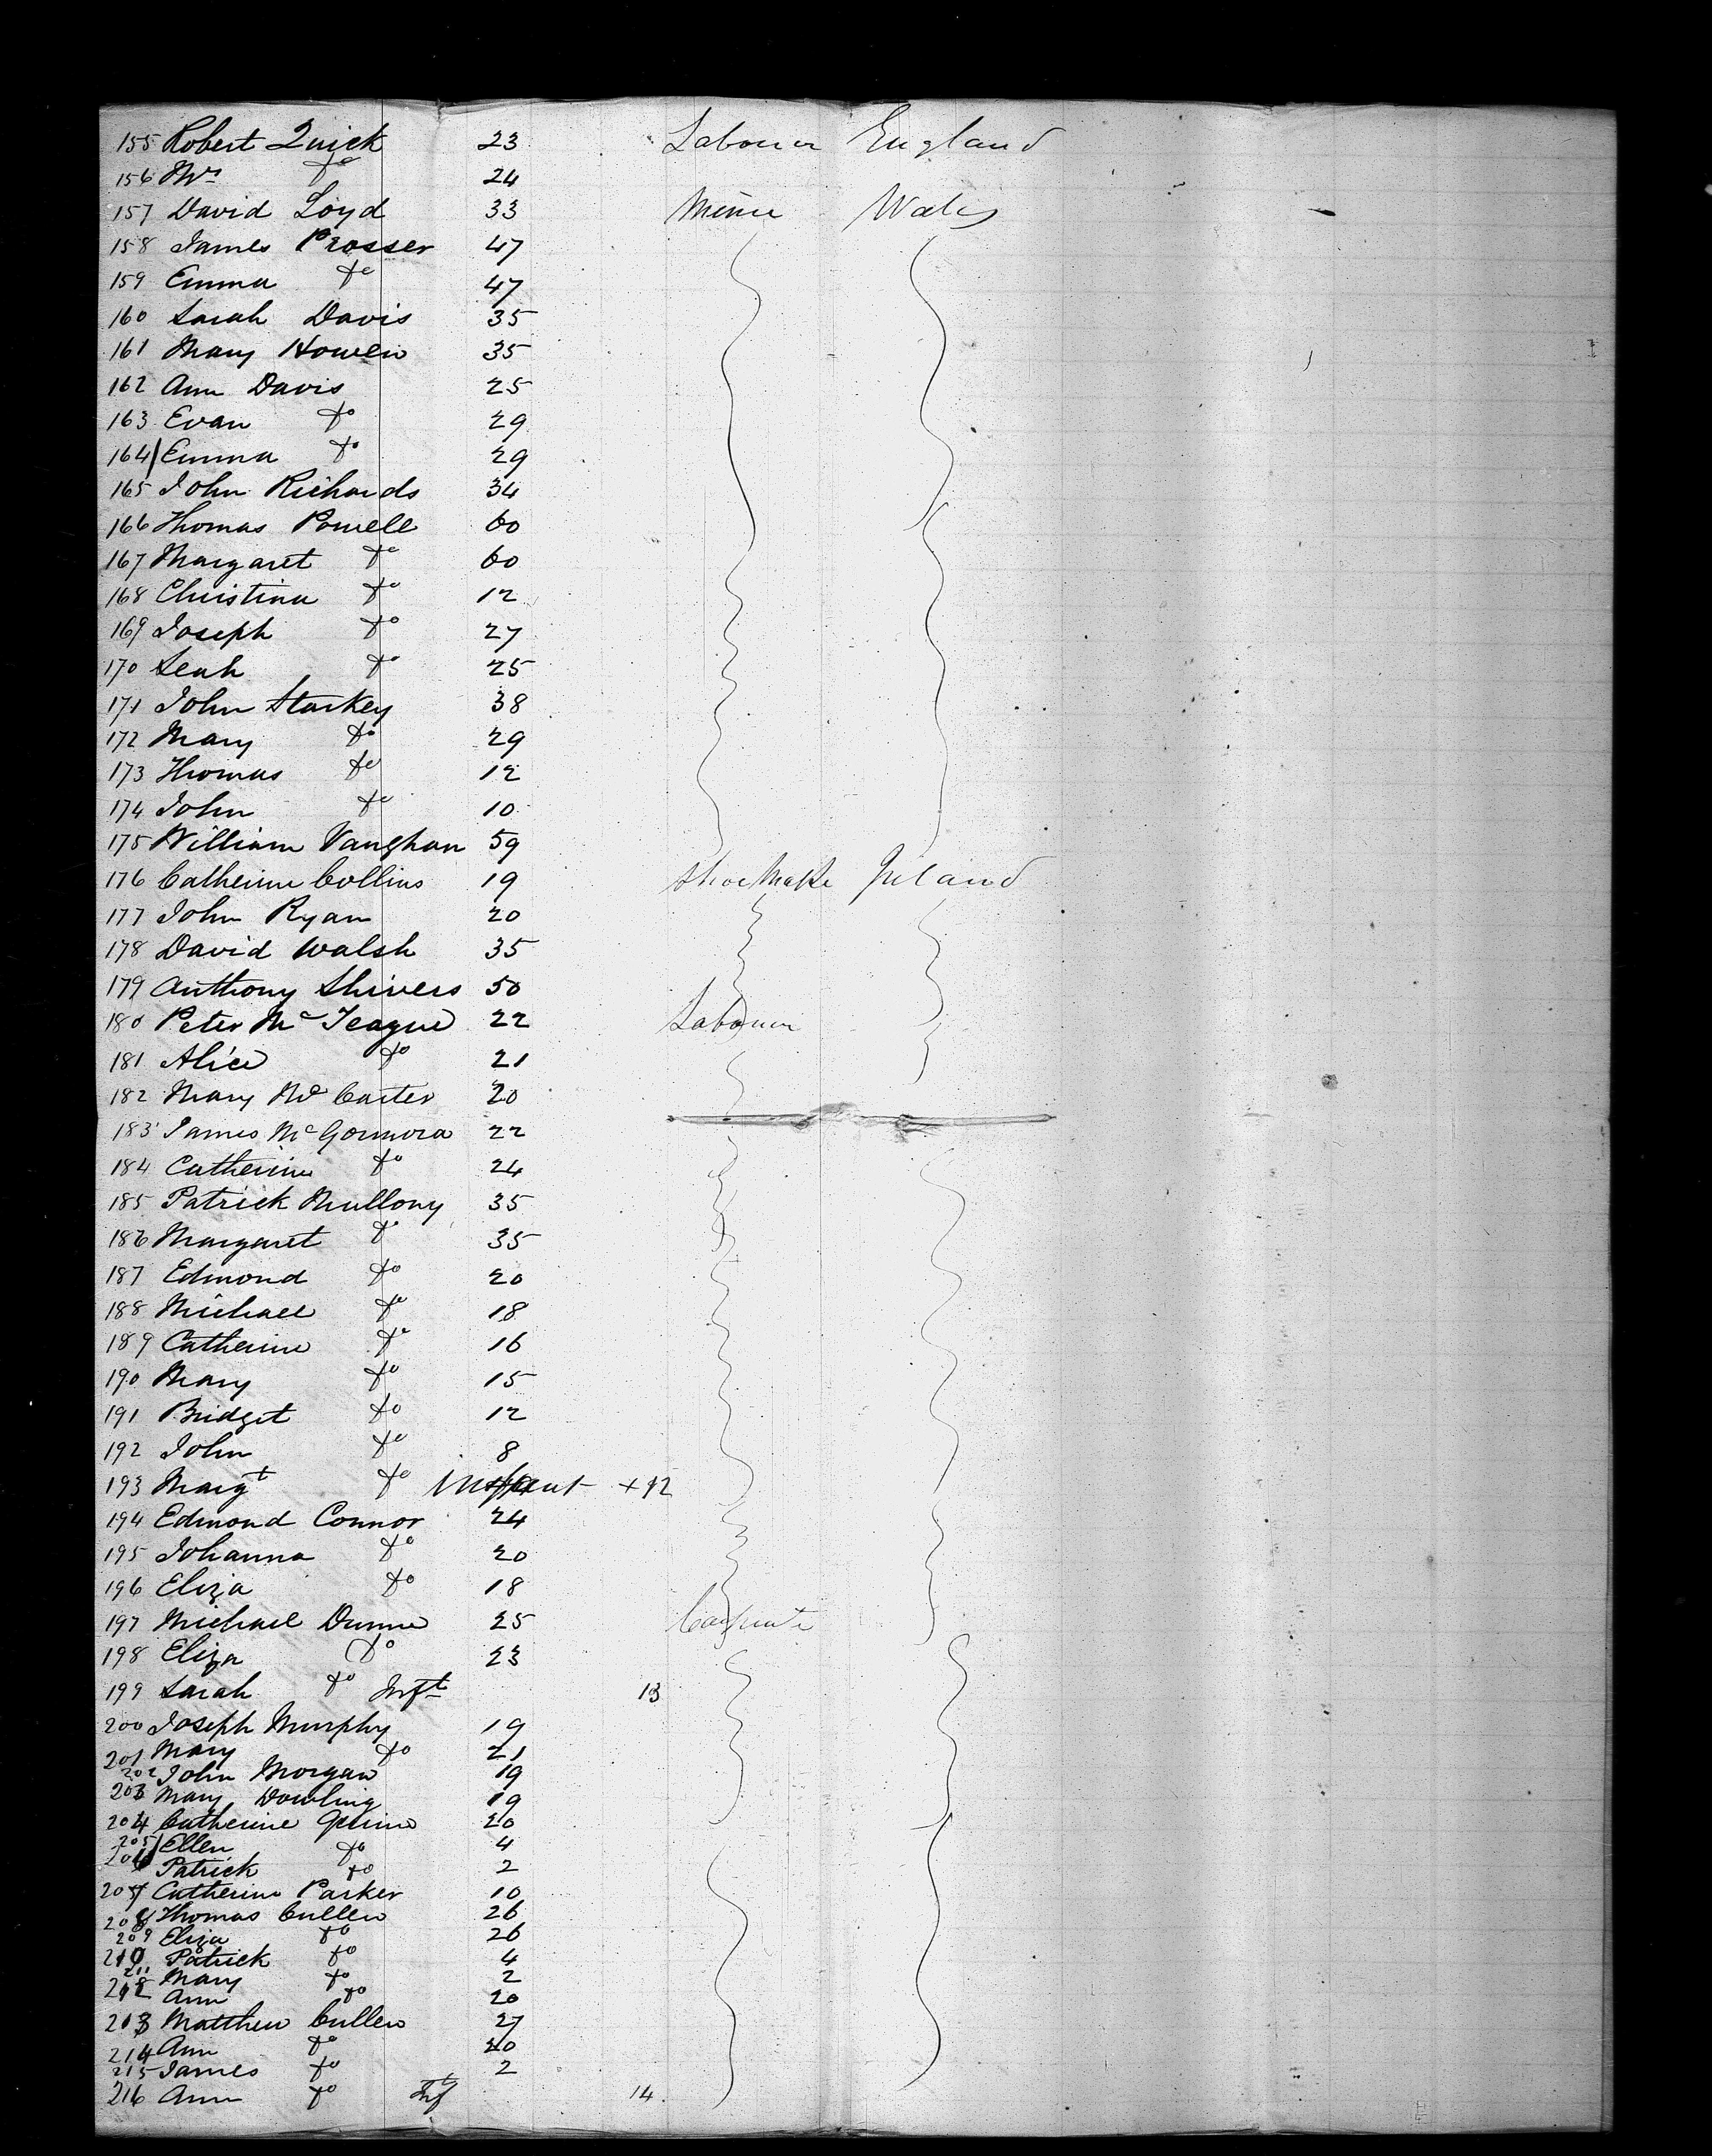 155 Robert Quick 23 Labourer England
156 Mrs do 24
157 David Loyd 33 Miner Wales
158 James Prosser 47
159 Emma do 47
160 Sarah Davis 35
161 Mary Howen 35
162 Ann Davis 25
163 Evan do 29
164 Emma do 29
165 John Richards 34
166 Thomas Powell 60
167 Margaret do 60
168 Christina do 12
169 Joseph do 27
170 Leah do 25
171 John Starkey 38
172 Mary do 29
173 Thomas do 12
174 John do 10
175 William Vaughan 59
176 Catherine Collins 19 Shoe Make Ireland
177 John Ryan 20
178 David Walsh 35
179 Anthony Shivers 50
180 Peter Mc Teague 22 Labourer
181 Alice do 21
182 Mary Mc Carter 20
183 James Mc 22
184 Catherine do 24
185 Patrick Mullony 35
186 Margaret do 35
187 Edmond do 20
188 Michael do 18
189 Catherine do 16
190 Mary do 15
191 Bridget do 12
192 John do 8
193 Margt do infant +12
194 Edmond Connor 24
195 Johanna do 20
196 Eliza do 18
197 Michael Dunne 25 Carpente
198 Eliza do 23
199 Sarah do Inft 13
200 Joseph Murphy 19
201 Mary do 21
202 John Morgan 19
203 Mary Dowling 19
204 Catherine 20
205 Ellen do 4
206 Patrick do 2
207 Catherine Parker 10
208 Thomas Cullen 26
209 Eliza do 26
210 Patrick do 4
211 Mary do 2
212 Ann do 20
213 Matthew Cullen 27
214 Ann do 20
215 James do 2
216 Ann do Inft 14